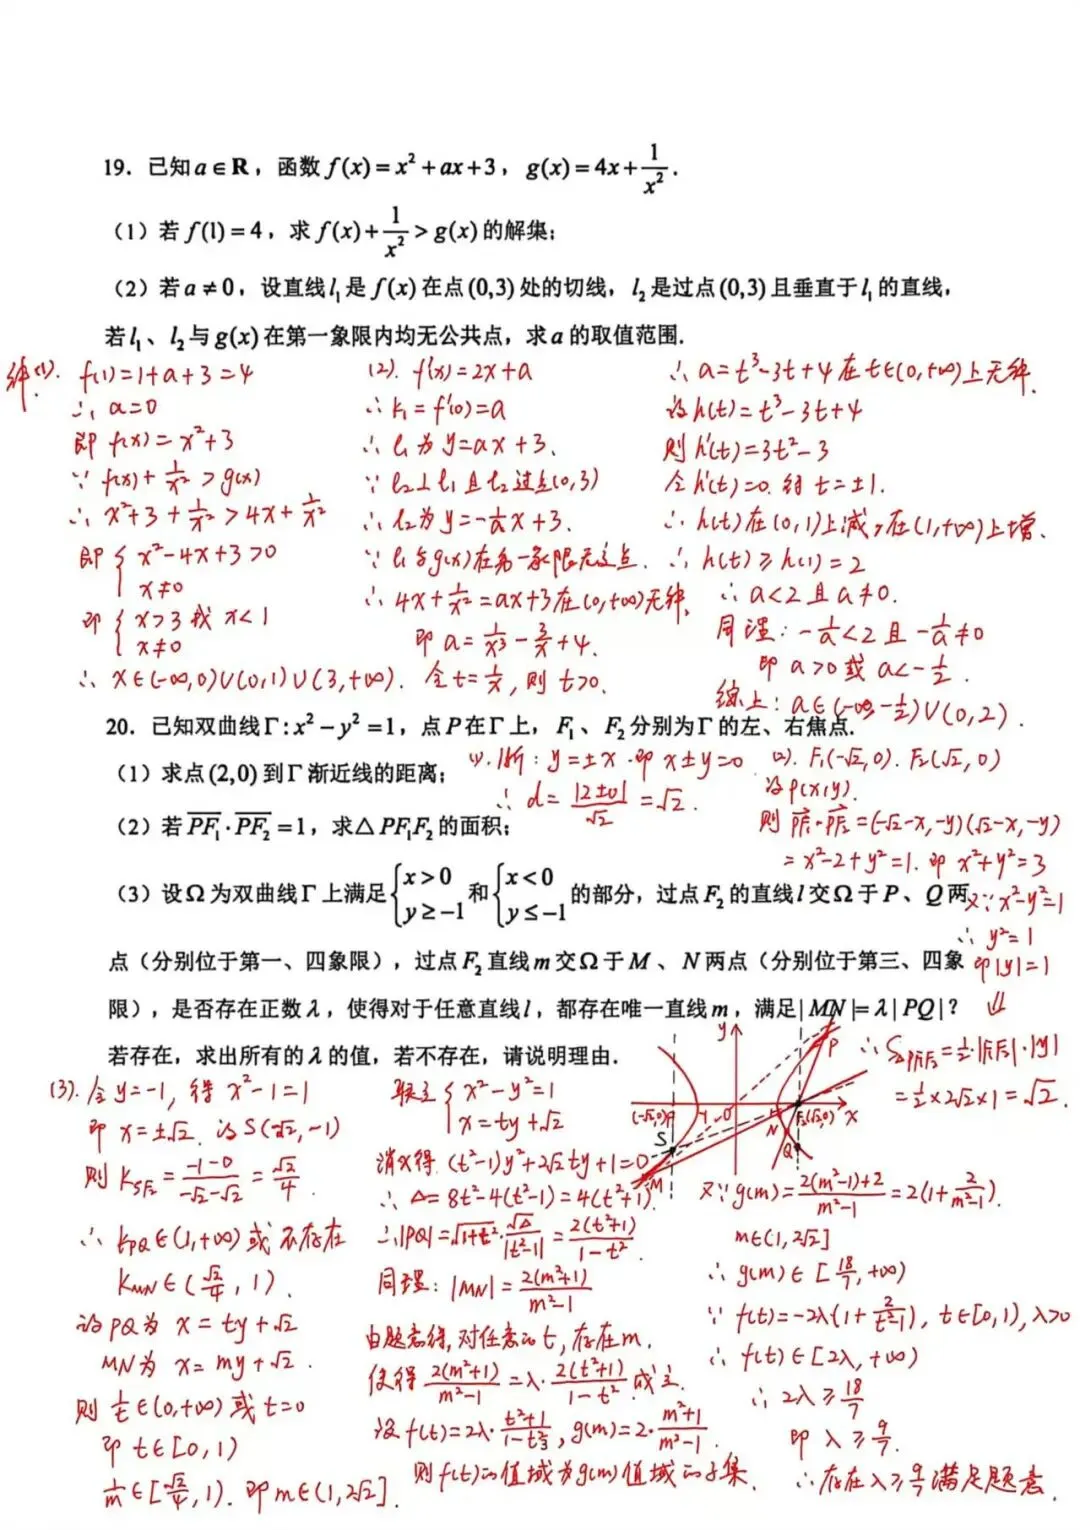 19. 已知 a∈R，函数 f(x)=x²+ax+3，g(x)=4x+1/x².
（1）若 f(1)=4，求 f(x)+1/x²>g(x) 的解集；
（2）若 a≠0，设直线 l₁ 是 f(x) 在点 (0,3) 处的切线，l₂ 是过点 (0,3) 且垂直于 l₁ 的直线，
若 l₁、l₂ 与 g(x) 在第一象限内均无公共点，求 a 的取值范围.
解(1). f(1)=1+a+3=4
∴ a=0
即 f(x)=x²+3
∵ f(x)+1/x²>g(x)
∴ x²+3+1/x²>4x+1/x²
即 { x²-4x+3>0
x≠0
即 { x>3 或 x<1
x≠0
∴ x∈(-∞,0)∪(0,1)∪(3,+∞).
(2). f'(x)=2x+a
∴ k₁=f'(0)=a
∴ l₁为 y=ax+3.
∵ l₂⊥l₁ 且 l₂过点(0,3)
∴ l₂为 y=-1/a x+3.
∵ l₁与g(x)在第一象限无交点.
∴ 4x+1/x²=ax+3在(0,+∞)无解.
即 a=1/x³-3/x+4.
令 t=1/x, 则 t>0.
∴ a=t³-3t+4在t∈(0,+∞)上无解.
设h(t)=t³-3t+4
则 h'(t)=3t²-3
令h'(t)=0. 得 t=±1.
∴ h(t)在(0,1)上减,在(1,+∞)上增.
∴ h(t)≥h(1)=2
∴ a<2且a≠0.
同理: -1/a<2且-1/a≠0
即 a>0或 a<-1/2.
综上: a∈(-∞,-1/2)∪(0,2).
20. 已知双曲线Γ: x²-y²=1，点 P 在Γ上，F₁、F₂ 分别为Γ的左、右焦点.
（1）求点 (2,0) 到Γ渐近线的距离；
（2）若 PF₁·PF₂=1，求△PF₁F₂ 的面积；
（3）设Ω为双曲线Γ上满足 { x>0 y≥-1 和 { x<0 y≤-1 的部分，过点 F₂ 的直线 l 交Ω于 P、Q 两
点（分别位于第一、四象限），过点 F₂ 直线 m 交Ω于 M、N 两点（分别位于第三、四象
限），是否存在正数 λ，使得对于任意直线 l，都存在唯一直线 m，满足|MN|=λ|PQ|？
若存在，求出所有的 λ 的值，若不存在，请说明理由.
(1). 渐: y=±x. 即 x±y=0
∴ d=|2±0|/√2=√2.
(2). F₁(-√2,0). F₂(√2,0)
设P(x,y).
则 PF₁·PF₂=(-√2-x,-y)(√2-x,-y)
=x²-2+y²=1. 即 x²+y²=3
又∵ x²-y²=1
∴ y²=1
即|y|=1
⇓
∴ S△PF₁F₂=1/2·|F₁F₂|·|y|
=1/2×2√2×1=√2.
(3). 令 y=-1, 得 x²-1=1
即 x=±√2. 设 S(-√2,-1)
则 k_SF₂=(-1-0)/(-√2-√2)=√2/4.
∴ k_PQ∈(1,+∞) 或不存在
k_MN∈(√2/4,1).
设PQ为 x=ty+√2
MN为 x=my+√2.
则 1/t∈(0,+∞)或 t=0
即 t∈[0,1)
1/m∈[√2/4,1). 即m∈(1,2√2].
联立 { x²-y²=1
x=ty+√2
消x得 (t²-1)y²+2√2ty+1=0
∴ Δ=8t²-4(t²-1)=4(t²+1)
∴|PQ|=√(1+t²)·√Δ/|t²-1|=2(t²+1)/(1-t²).
同理: |MN|=2(m²+1)/(m²-1)
由题意得, 对任意的t, 存在m.
使得 2(m²+1)/(m²-1)=λ·2(t²+1)/(1-t²) 成立.
设 f(t)=2λ·(t²+1)/(1-t²), g(m)=2·(m²+1)/(m²-1).
则 f(t)的值域为g(m)值域的子集.
y
P
(-√2,0)
F₁
-1
O
F₂(√2,0)
x
S
N
Q
M
又∵ g(m)=(2(m²-1)+2)/(m²-1)=2(1+2/(m²-1)).
m∈(1,2√2]
∴ g(m)∈[18/7,+∞)
∵ f(t)=-2λ(1+2/(t²-1)), t∈[0,1),λ>0
∴ f(t)∈[2λ,+∞)
∴ 2λ≥18/7
即 λ≥9/7.
∴ 存在λ≥9/7满足题意.